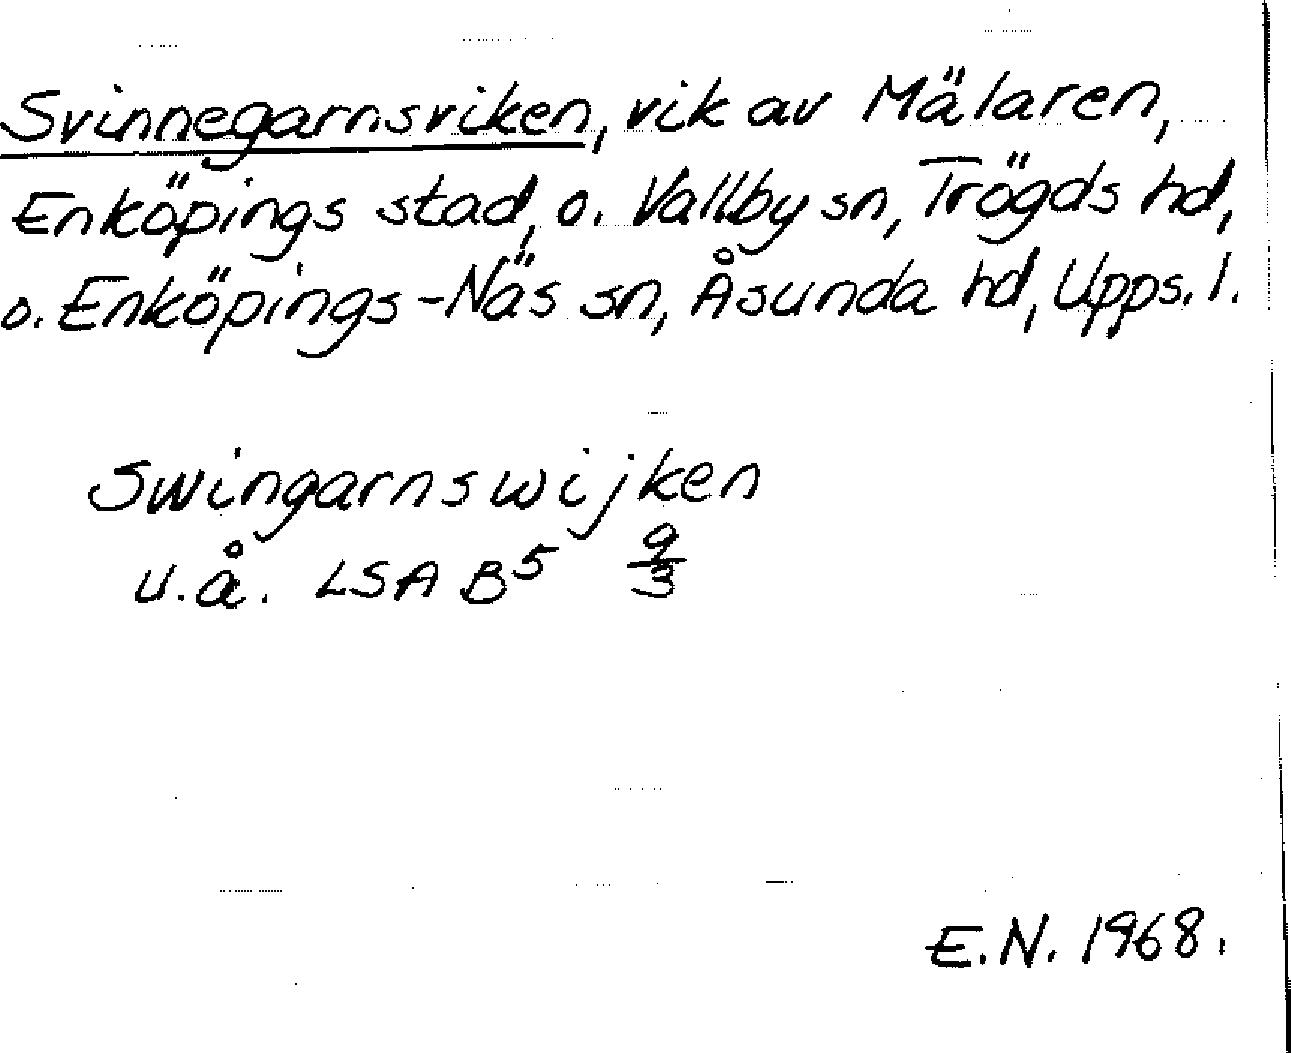 Svinnegarnsviken, vik av Mälaren,
Enköpings stad, o. Vallby sn, Trögds hd,
o. Enköpings-Näs sn, Åsunda hd, Upps. l.
Swingarnswijken
u.å. LSA B⁵ 9/3
E.N. 1968.